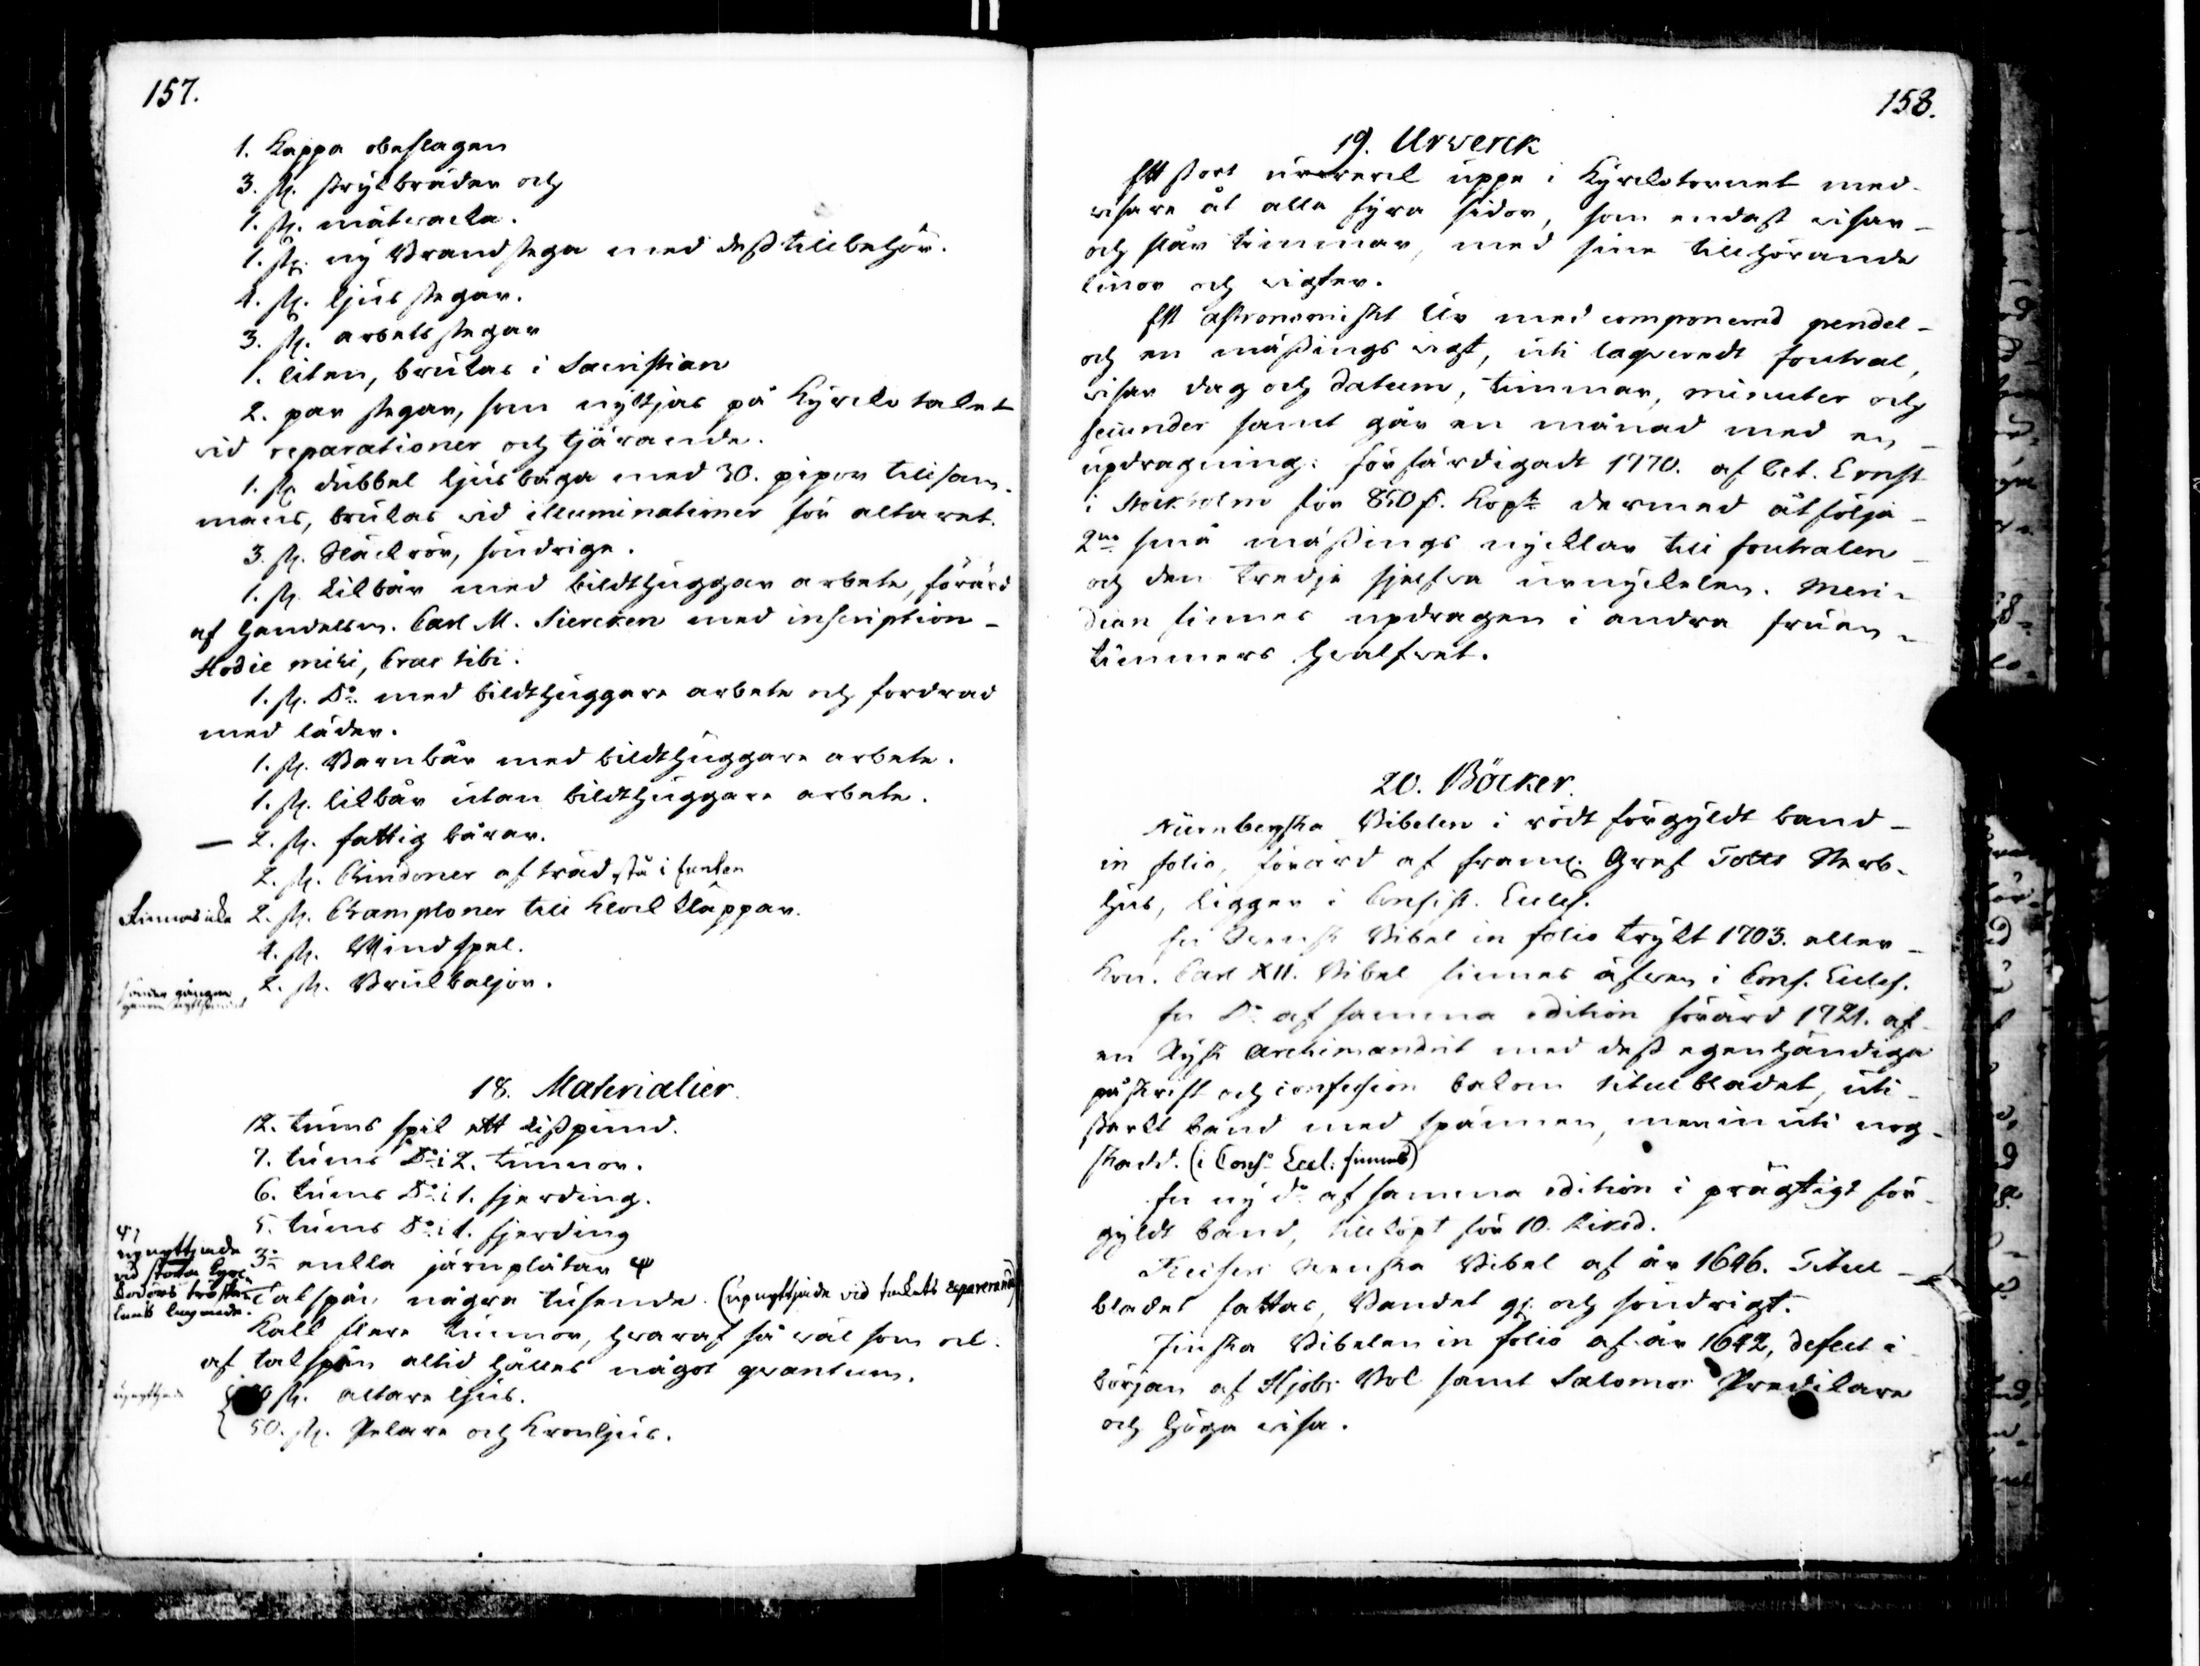 157.
1. Kappa obeslagen
3. st. strykbräden och
1. st. mätwacka.
1. st. ny Brandstega med dess tillbehör.
4. st. ljus stegar.
3. st. arbets stegar
1. liten, brukas i Sacristian
2. par stegar, som nyttjas på Kyrcko taket
vid reparationer och tjärande.
1. st. dubbel ljusbåga med 30. pipor tillsam-
mans, brukas vid illuminationer för altaret.
3. st. Släckrör, söndrige.
1. st. Likbår med bildthuggar arbete, förärd
af Handelsm. Carl M. Siercken med inscription
Hodie mihi, Cras tibi.
1. st. Do. med bildthuggare arbete och fordrad
med läder.
1. st. Barnbår med bildthuggare arbete.
1. st. likbår utan bildthuggare arbete.
— 2. st. fattig bårar.
2. st. Chindoner af träd stå i
Finnas icke 2. st. Champloner till Klock kläppar.
4. st. Windspel.
sönder gångne 2. st. Brukbaljor.
genom
18. Materialier.
12. tums spik ett Lisspund.
7. tums Do. i 2. tunnor.
6. tums Do. i 1. fjerding.
5. tums Do. i 1. fjerding
3:ne enkla järnplåtar Ψ
Ψ)
upnyttjade
vid stora Kyrc-
kodörs
lagande.
Takspån, några tusende. (upnyttjade vid takets reparerand)
Kalk flere tunnor, hvaraf så väl som ock
af takspån altid hålles något quantum.
upnyttjade
st. altare ljus.
50. st. Pelare och Kronljus.
158.
19. Urwerck
Ett stort urverck uppe i Kyrckotornet med
visare åt alla fyra sidor, som endast visar
och slår timmar, med sine tillhörande
linor och vigter.
Ett Astronomiskt Ur med componerad pendel
och en mässings vigt, uti laqveradt foutral,
visar dag och datum, timmar, minuter och
secunder samt går en månad med en
updragning: förfärdigadt 1770. af Pet. Ernst
i Stockholm för 850 Kopt. dermed åtfölja
2ne små mässings nycklar till foutralen
och den tredje sjelfva urnyckelen. Meri-
dian finnes updragen i andra fruen-
timmers hvalfvet.
20. Böcker.
Nürnbergska Bibelen i rödt förgyldt band
in folio, förärd af framl. Gref Totts Sterb-
hus, ligger i Consist. Eccles.
En Svensk Bibel in folio trykt 1703. eller
Kon. Carl XII. Bibel finnes äfven i Cons. Eccles.
En Do. af samma edition förärd 1721. af
en Rysk Archimandrit med dess egenhändiga
påskrift och confession bakom titul bladet, uti
starkt band med spännen, men inuti nog
skadd. (i Cons. Eccl. finnes)
En ny do. af samma edition i prägtigt för-
gyldt band, tillköpt för 10. Riksd.
Keisers Svenska Bibel af år 1646. Titul
bladet fattas, Bandet gl. och söndrigt.
Finska Bibelen in folio af år 1642, defect i
början af Hjobs Bok samt Salomos Predikare
och höga visa.